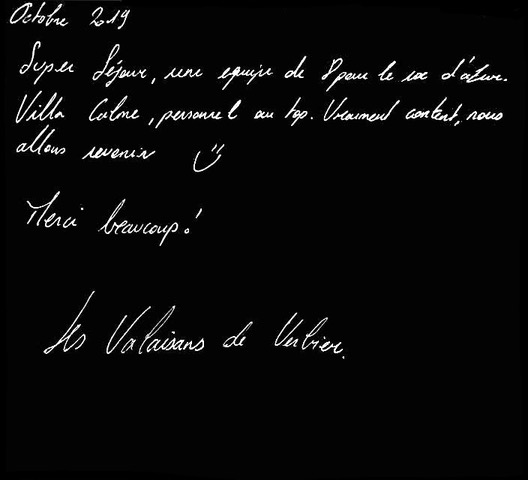 Octobre 2019
Super Séjour, une equipe de 8 pour le roc d'azur.
Villa Calme, personnel au top. Vraiment content, nous
allons revenir
Merci beaucoup!
Les Valaisans de Verbier.